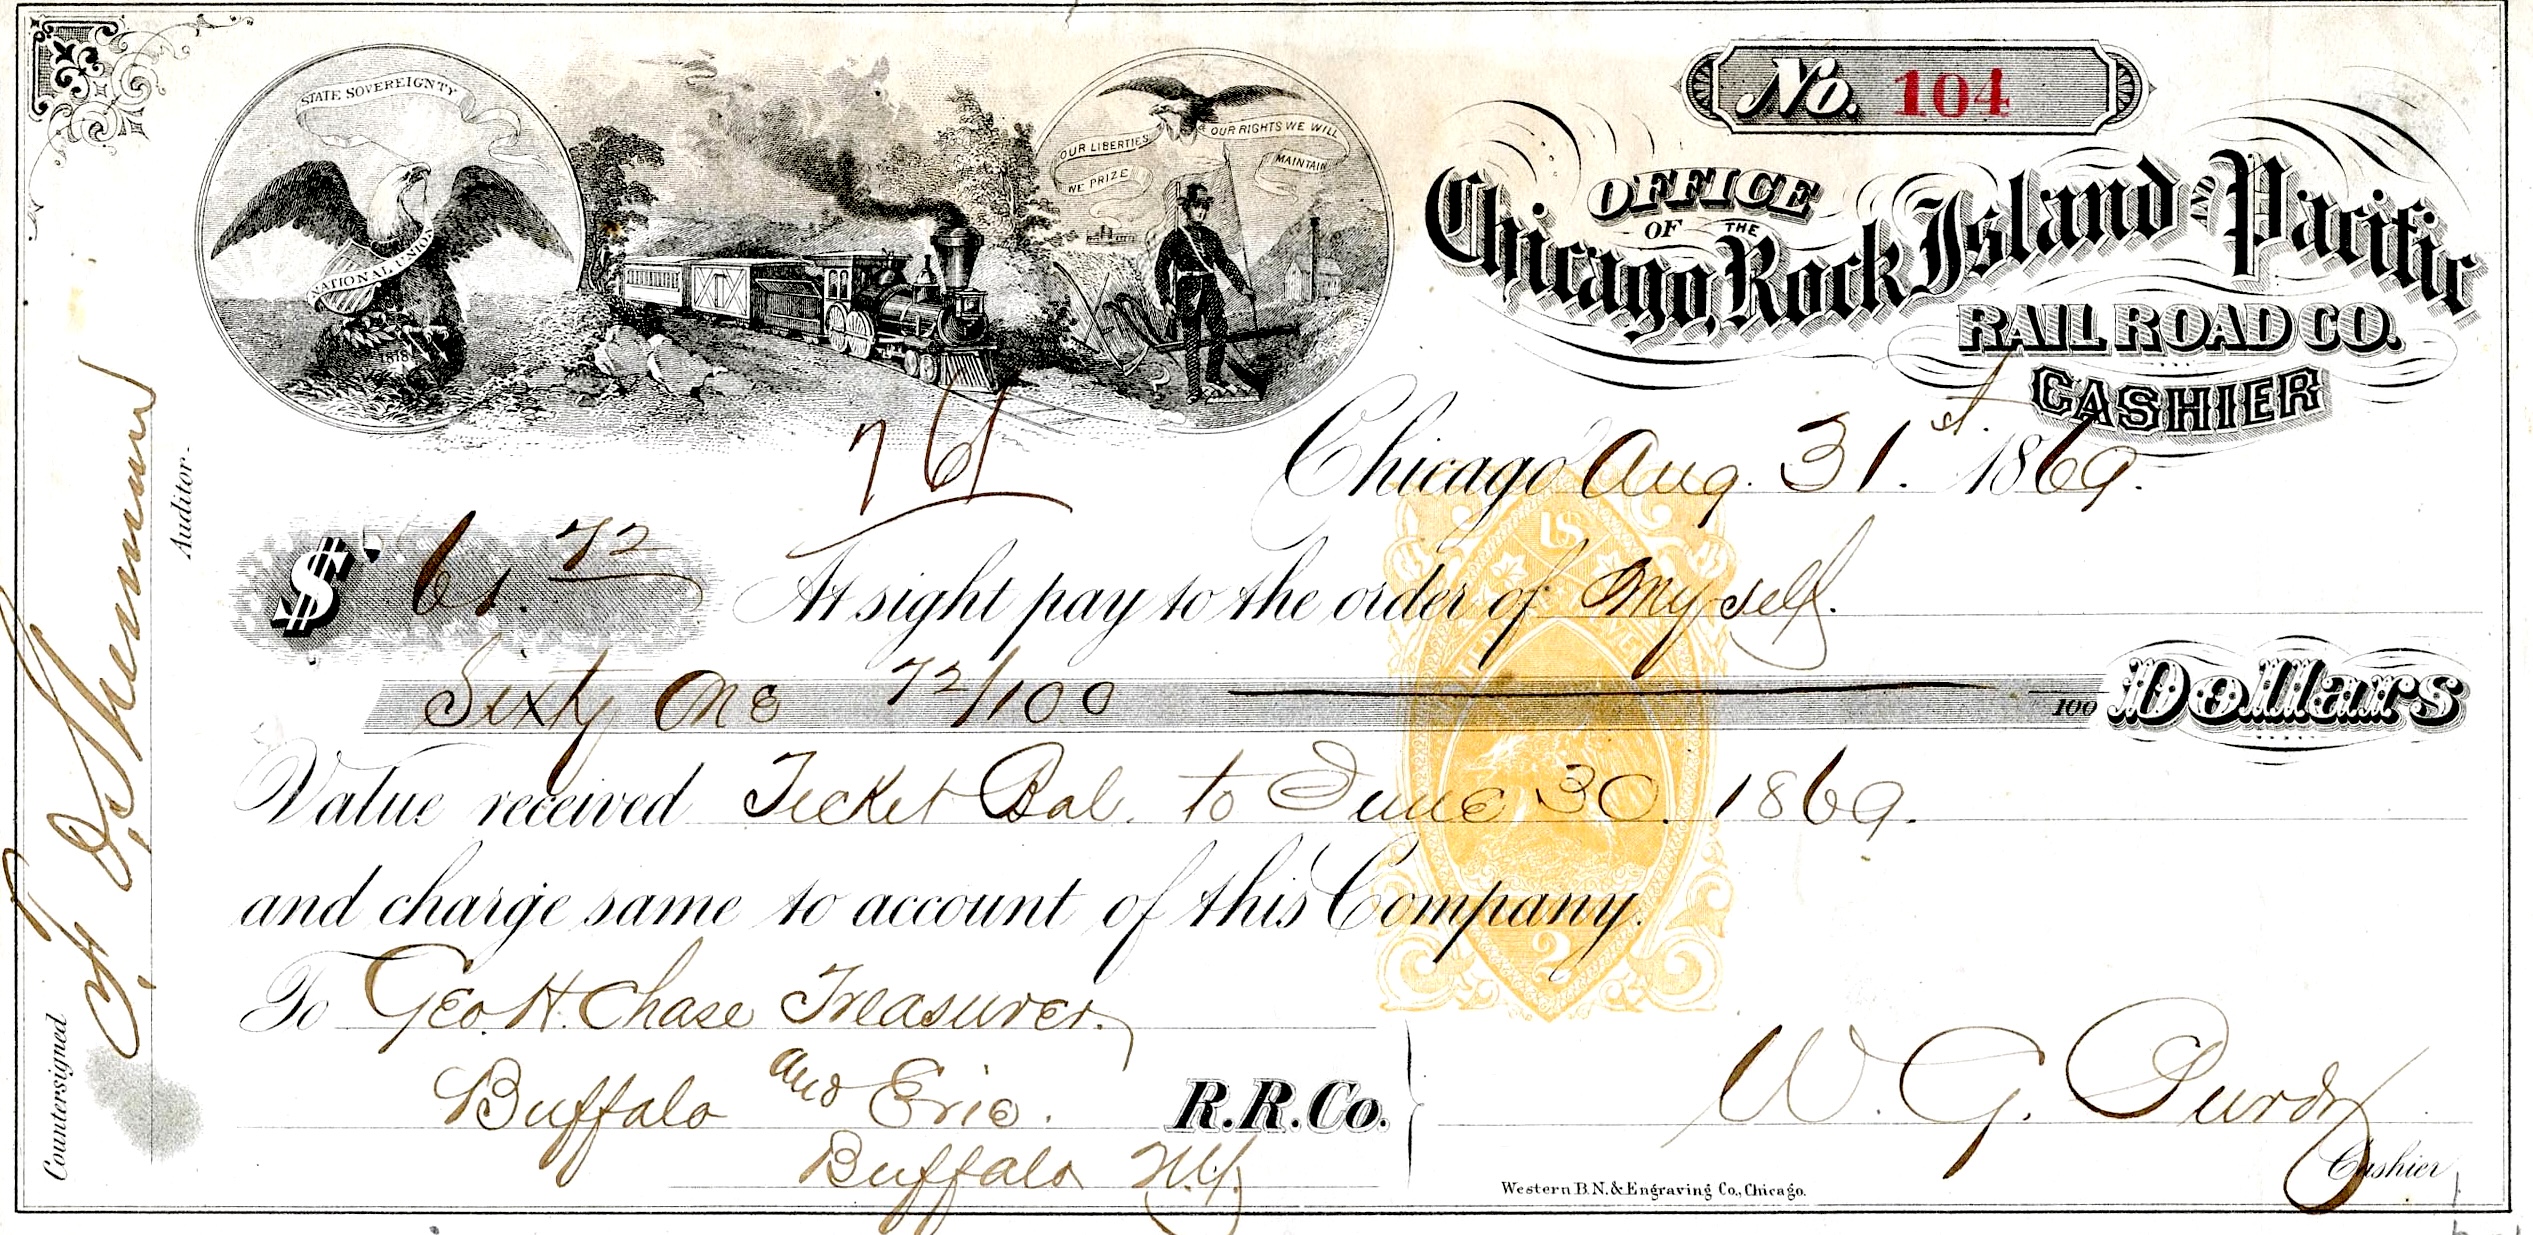 STATE SOVEREIGNTY
NATIONAL UNION
1818
OUR LIBERTIES WE PRIZE
OUR RIGHTS WE WILL MAINTAIN
No. 104
OFFICE
OF THE
Chicago, Rock Island AND Pacific
RAIL ROAD CO.
CASHIER
761
Chicago Aug. 31st. 1869.
$ 61.72 At sight pay to the order of Myself.
Sixty One 72/100 100 Dollars
Value received Ticket Bal. to June 30. 1869.
and charge same to account of this Company.
To Geo. H. Chase Treasurer,
Buffalo and Erie. R.R. Co.
Buffalo N.Y.
W. G. Purdy
Cashier
Western B.N. & Engraving Co., Chicago.
Countersigned
Auditor.
US
2